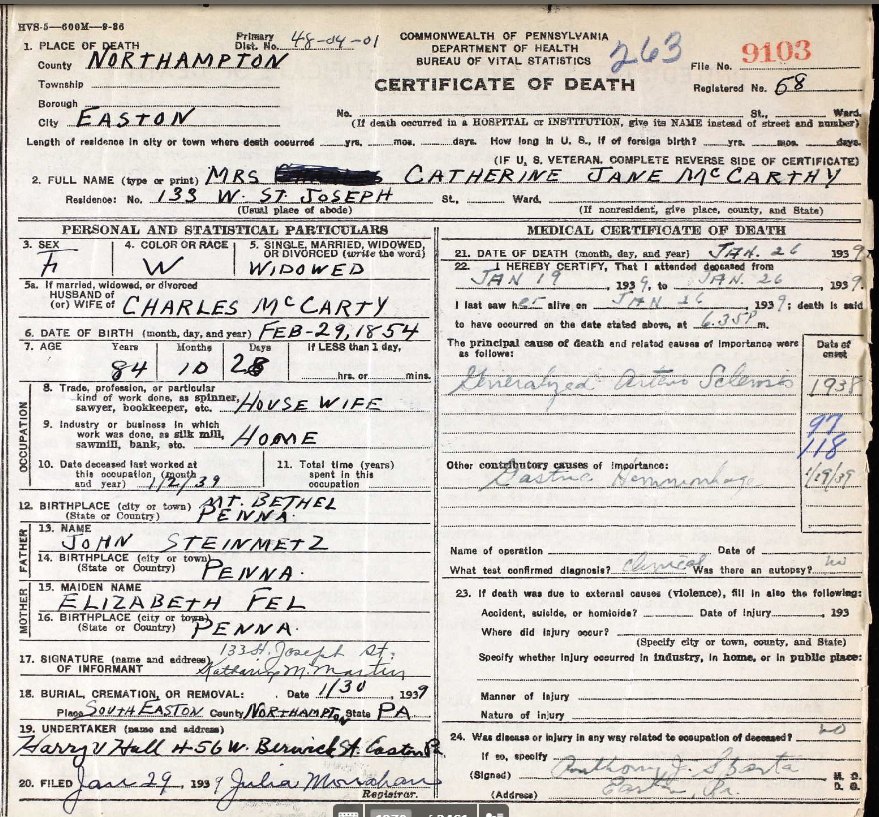 HVS-5—600M—9-36
1. PLACE OF DEATH
County NORTHAMPTON
Township
Borough
City EASTON
Primary Dist. No. 48-04-01
COMMONWEALTH OF PENNSYLVANIA
DEPARTMENT OF HEALTH
BUREAU OF VITAL STATISTICS
CERTIFICATE OF DEATH
263
File No. 9103
Registered No. 58
No. St., Ward.
(If death occurred in a HOSPITAL or INSTITUTION, give its NAME instead of street and number)
Length of residence in city or town where death occurred yrs. mos. days. How long in U. S., if of foreign birth? yrs. mos. days.
(IF U. S. VETERAN, COMPLETE REVERSE SIDE OF CERTIFICATE)
2. FULL NAME (type or print) MRS CATHERINE JANE McCARTHY
Residence: No. 133 W. ST JOSEPH St., Ward.
(Usual place of abode) (If nonresident, give place, county, and State)
PERSONAL AND STATISTICAL PARTICULARS
3. SEX F
4. COLOR OR RACE W
5. SINGLE, MARRIED, WIDOWED, OR DIVORCED (write the word) WIDOWED
5a. If married, widowed, or divorced
HUSBAND of
(or) WIFE of CHARLES McCARTY
6. DATE OF BIRTH (month, day, and year) FEB-29, 1854
7. AGE Years Months Days If LESS than 1 day,
84 10 28 hrs. or mins.
OCCUPATION
8. Trade, profession, or particular
kind of work done, as spinner,
sawyer, bookkeeper, etc. HOUSE WIFE
9. Industry or business in which
work was done, as silk mill,
sawmill, bank, etc. HOME
10. Date deceased last worked at
this occupation (month
and year) 1/2/39
11. Total time (years)
spent in this
occupation
12. BIRTHPLACE (city or town) MT. BETHEL
(State or Country) PENNA.
FATHER
13. NAME
JOHN STEINMETZ
14. BIRTHPLACE (city or town)
(State or Country) PENNA.
MOTHER
15. MAIDEN NAME
ELIZABETH FEL
16. BIRTHPLACE (city or town)
(State or Country) PENNA.
133 W. Joseph St.
17. SIGNATURE (name and address)
OF INFORMANT Katharine M. Martin
18. BURIAL, CREMATION, OR REMOVAL: Date 1/30 1939
Place SOUTH EASTON County NORTHAMPTON State PA
19. UNDERTAKER (name and address)
Harry V Hall 456 W. Berwick St. Easton Pa
20. FILED Jan 29, 1939 Julia Monahan
Registrar.
MEDICAL CERTIFICATE OF DEATH
21. DATE OF DEATH (month, day, and year) JAN. 26 1939
22. I HEREBY CERTIFY, That I attended deceased from
JAN 19, 1939, to JAN. 26 1939.
I last saw her alive on JAN 26 1939; death is said
to have occurred on the date stated above, at 6:35P m.
The principal cause of death and related causes of importance were
as follows:
Date of onset
Generalized Arterio Sclerosis 1938
97
118
Other contributory causes of importance:
Gastric Hemmorrhage 1/19/39
Name of operation Date of
What test confirmed diagnosis? Clinical Was there an autopsy? no
23. If death was due to external causes (violence), fill in also the following:
Accident, suicide, or homicide? Date of injury 193
Where did injury occur?
(Specify city or town, county, and State)
Specify whether injury occurred in industry, in home, or in public place:
Manner of injury
Nature of injury
24. Was disease or injury in any way related to occupation of deceased? no
If so, specify
(Signed) Anthony J. Sparta M. D.
D. O.
(Address) Easton, Pa.